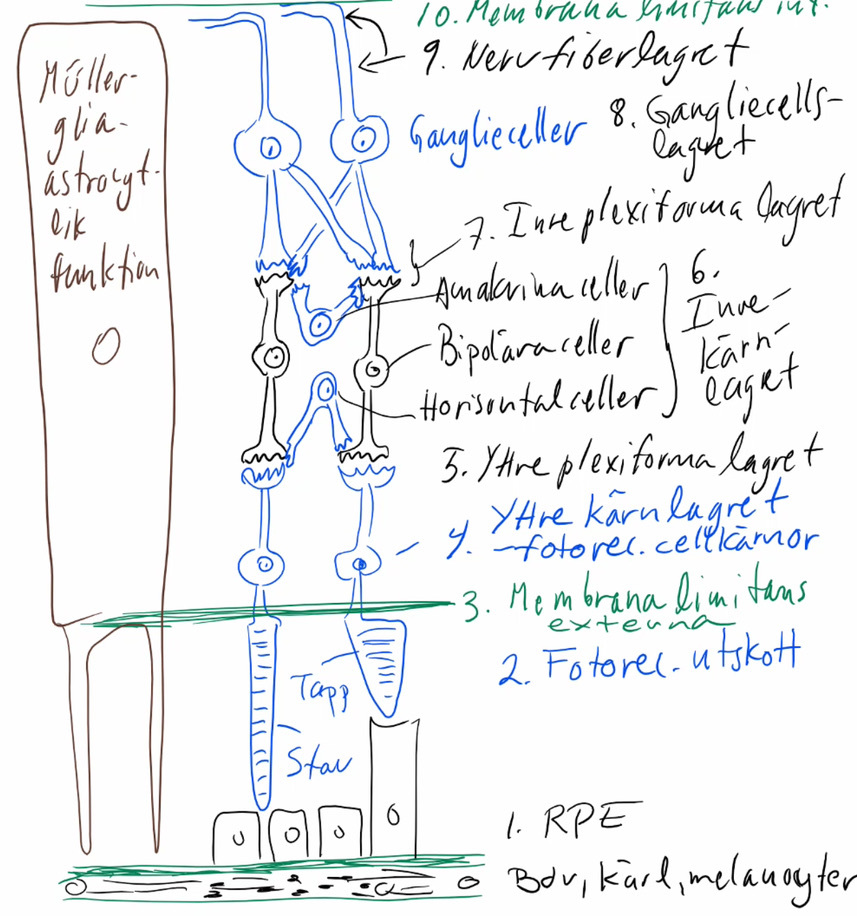 10. Membrana limitans int.
9. Nervfiberlagret
Müller-
glia-
astrocyt-
lik
funktion
Ganglieceller
8. Gangliecells-
lagret
7. Inre plexiforma lagret
Amakrina celler
Bipolära celler
Horisontalceller
6.
Inre-
kärn-
lagret
5. Yttre plexiforma lagret
4. Yttre kärnlagret
-fotorec. cellkärnor
3. Membrana limitans
externa
2. Fotorec. utskott
Tapp
Stav
1. RPE
, kärl, melanocyter